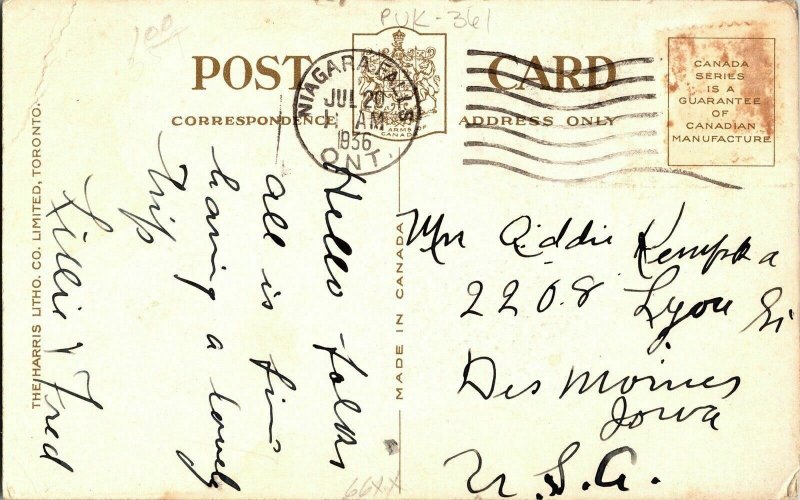 PUK-361
100
POST CARD
CORRESPONDENCE
ADDRESS ONLY
ARMS OF
CANADA
NIAGARA FALLS
JUL 20
11 AM
1936
ONT.
CANADA
SERIES
IS A
GUARANTEE
OF
CANADIAN
MANUFACTURE
Hello folks
all is fine
having a lovely
trip
Lillie & Fred
Mrs Eddie Kempka
2208 Lyon St
Des Moines
Iowa
U.S.A.
MADE IN CANADA
THE HARRIS LITHO. CO. LIMITED, TORONTO.
66XX